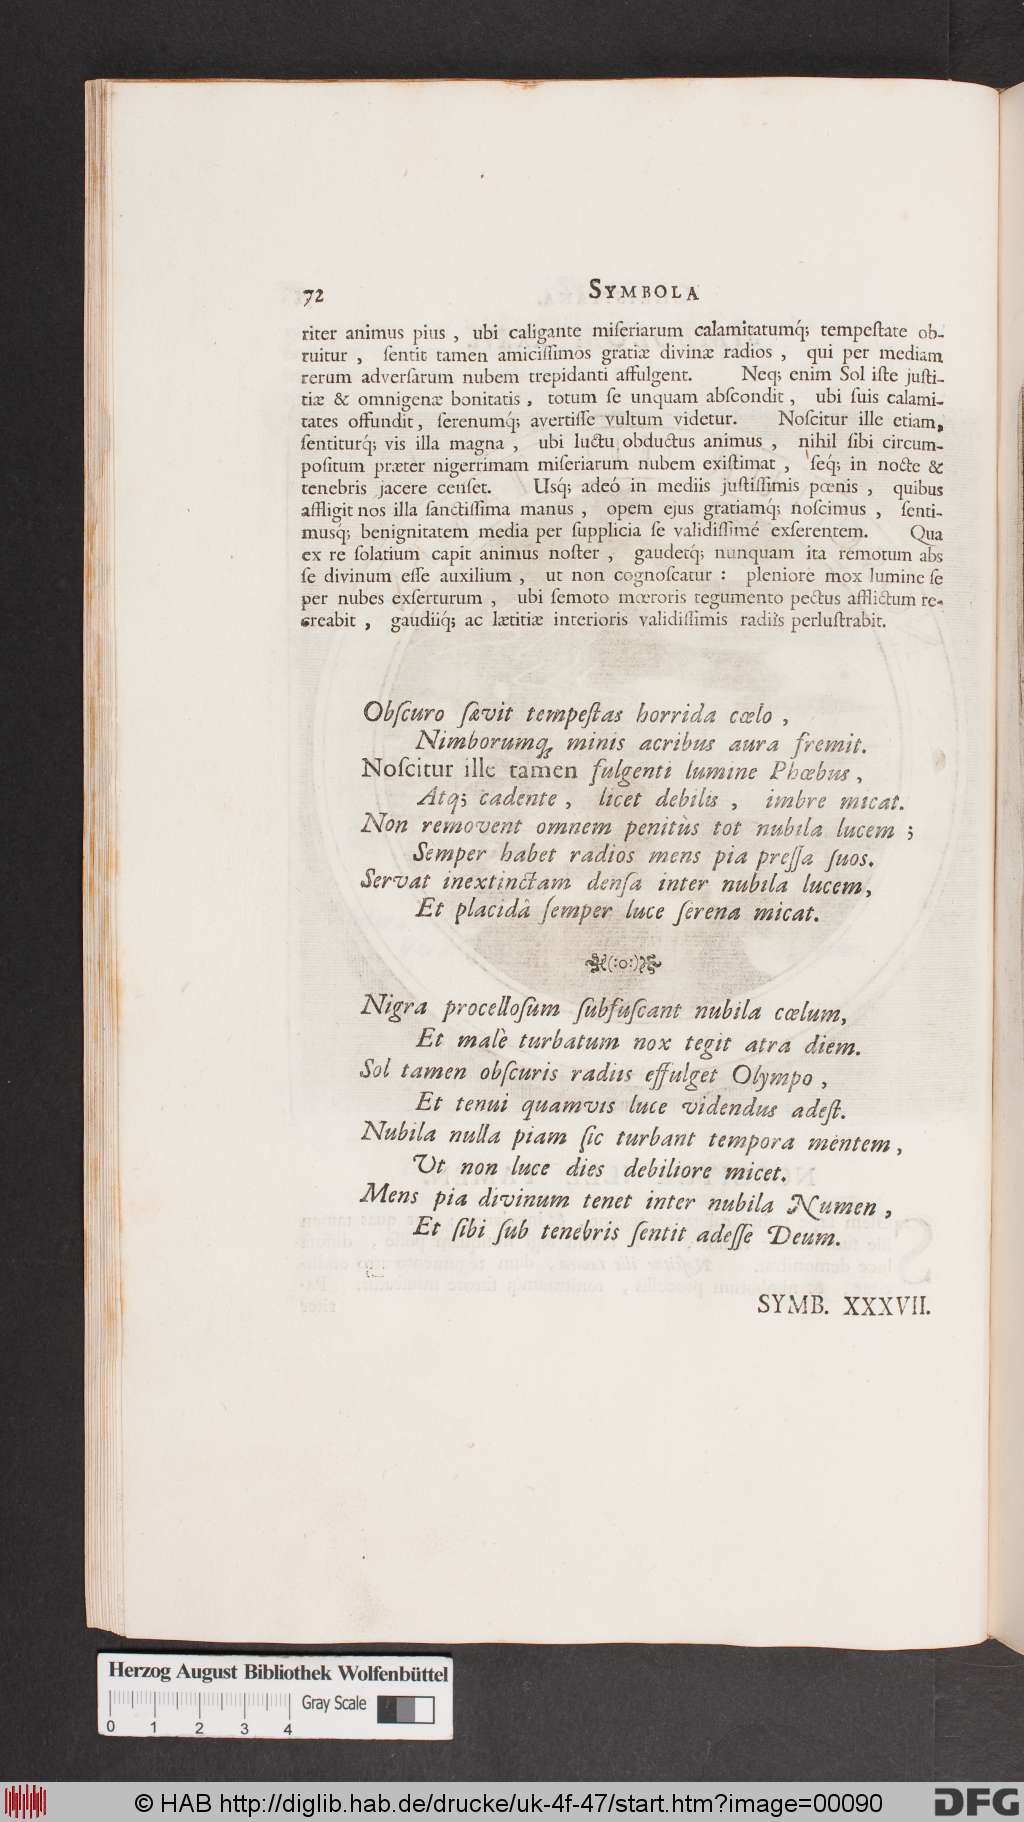 72 SYMBOLA
riter animus pius , ubi caligante miſeriarum calamitatumq́; tempeſtate ob-
ruitur , ſentit tamen amiciſſimos gratiæ divinæ radios , qui per mediam
rerum adverſarum nubem trepidanti affulgent. Neq; enim Sol iſte juſti-
tiæ & omnigenæ bonitatis , totum ſe unquam abſcondit , ubi ſuis calami-
tates offundit , ſerenumq́; avertiſſe vultum videtur. Noſcitur ille etiam,
ſentiturq́; vis illa magna , ubi luctu obductus animus , nihil ſibi circum-
poſitum præter nigerrimam miſeriarum nubem exiſtimat , ſeq́; in nocte &
tenebris jacere cenſet. Usq́; adeó in mediis juſtiſſimis pœnis , quibus
affligit nos illa ſanctiſſima manus , opem ejus gratiamq́; noſcimus , ſenti-
musq́; benignitatem media per ſupplicia ſe validiſſimé exſerentem. Qua
ex re ſolatium capit animus noſter , gaudetq́; nunquam ita remotum abs
ſe divinum eſſe auxilium , ut non cognoſcatur : pleniore mox lumine ſe
per nubes exſerturum , ubi ſemoto mœroris tegumento pectus afflictum re-
creabit , gaudiiq́; ac lætitiæ interioris validiſſimis radiis perluſtrabit.
Obſcuro ſævit tempeſtas horrida cœlo ,
Nimborumq; minis acribus aura fremit.
Noſcitur ille tamen fulgenti lumine Phœbus ,
Atq; cadente , licet debilis , imbre micat.
Non removent omnem penitùs tot nubila lucem ;
Semper habet radios mens pia preſſa ſuos.
Servat inextinctam denſa inter nubila lucem,
Et placidâ ſemper luce ſerena micat.
(:o:)
Nigra procelloſum ſubfuſcant nubila cœlum,
Et malè turbatum nox tegit atra diem.
Sol tamen obſcuris radiis effulget Olympo ,
Et tenui quamvis luce videndus adeſt.
Nubila nulla piam ſic turbant tempora mentem ,
Ut non luce dies debiliore micet.
Mens pia divinum tenet inter nubila Numen ,
Et ſibi ſub tenebris ſentit adeſſe Deum.
SYMB. XXXVII.
Herzog August Bibliothek Wolfenbüttel
Gray Scale
0 1 2 3 4
© HAB http://diglib.hab.de/drucke/uk-4f-47/start.htm?image=00090
DFG